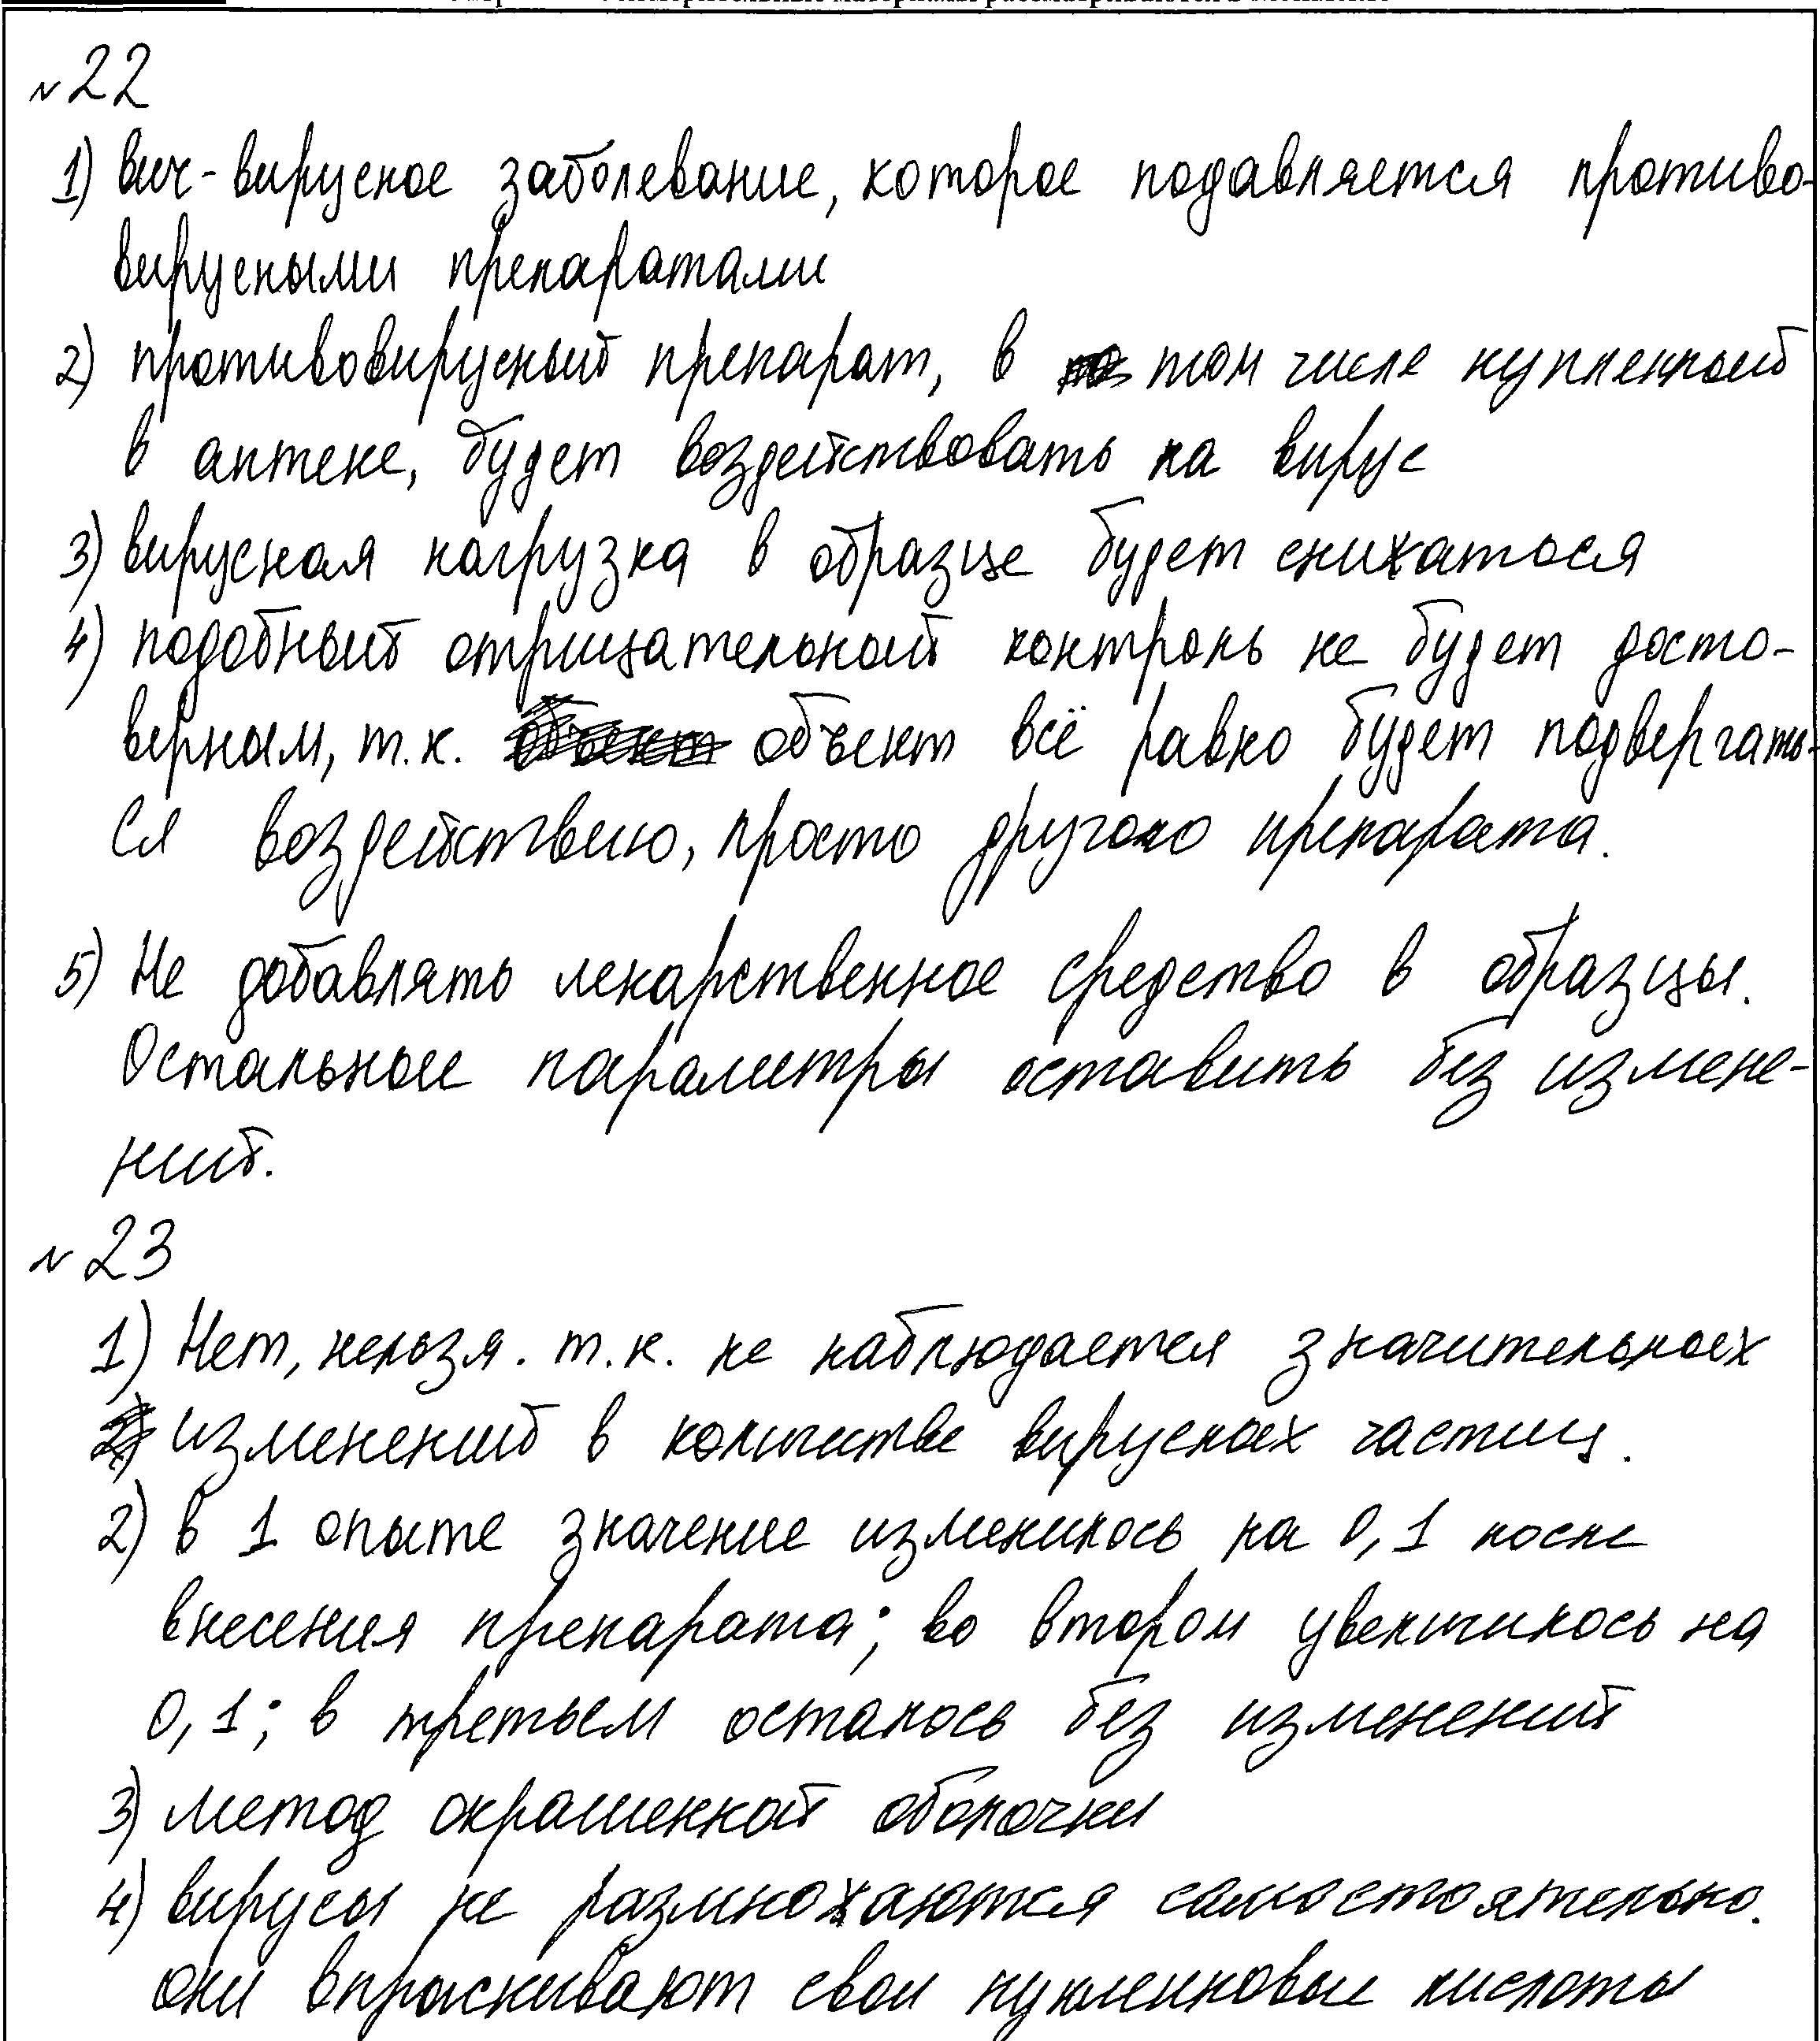 №22
1) вич-вирусное заболевание, которое подавляется противо-
вирусными препаратами
2) противовирусный препарат, в том числе купленный
в аптеке, будет воздействовать на вирус
3) вирусная нагрузка в образце будет снижаться
4) подобный отрицательный контроль не будет досто-
верным, т.к. объект всё равно будет подвергать-
ся воздействию, просто другого препарата.
5) Не добавлять лекарственное средство в образцы.
Остальные параметры оставить без измене-
ний.
№23
1) Нет, нельзя. т.к. не наблюдается значительных
изменений в количестве вирусных частиц.
2) в 1 опыте значение изменилось на 0,1 после
внесения препарата; во втором увеличилось на
0,1; в третьем осталось без изменений
3) метод окрашенной оболочки
4) вирусы не размножаются самостоятельно.
они впрыскивают свои нуклеиновые кислоты